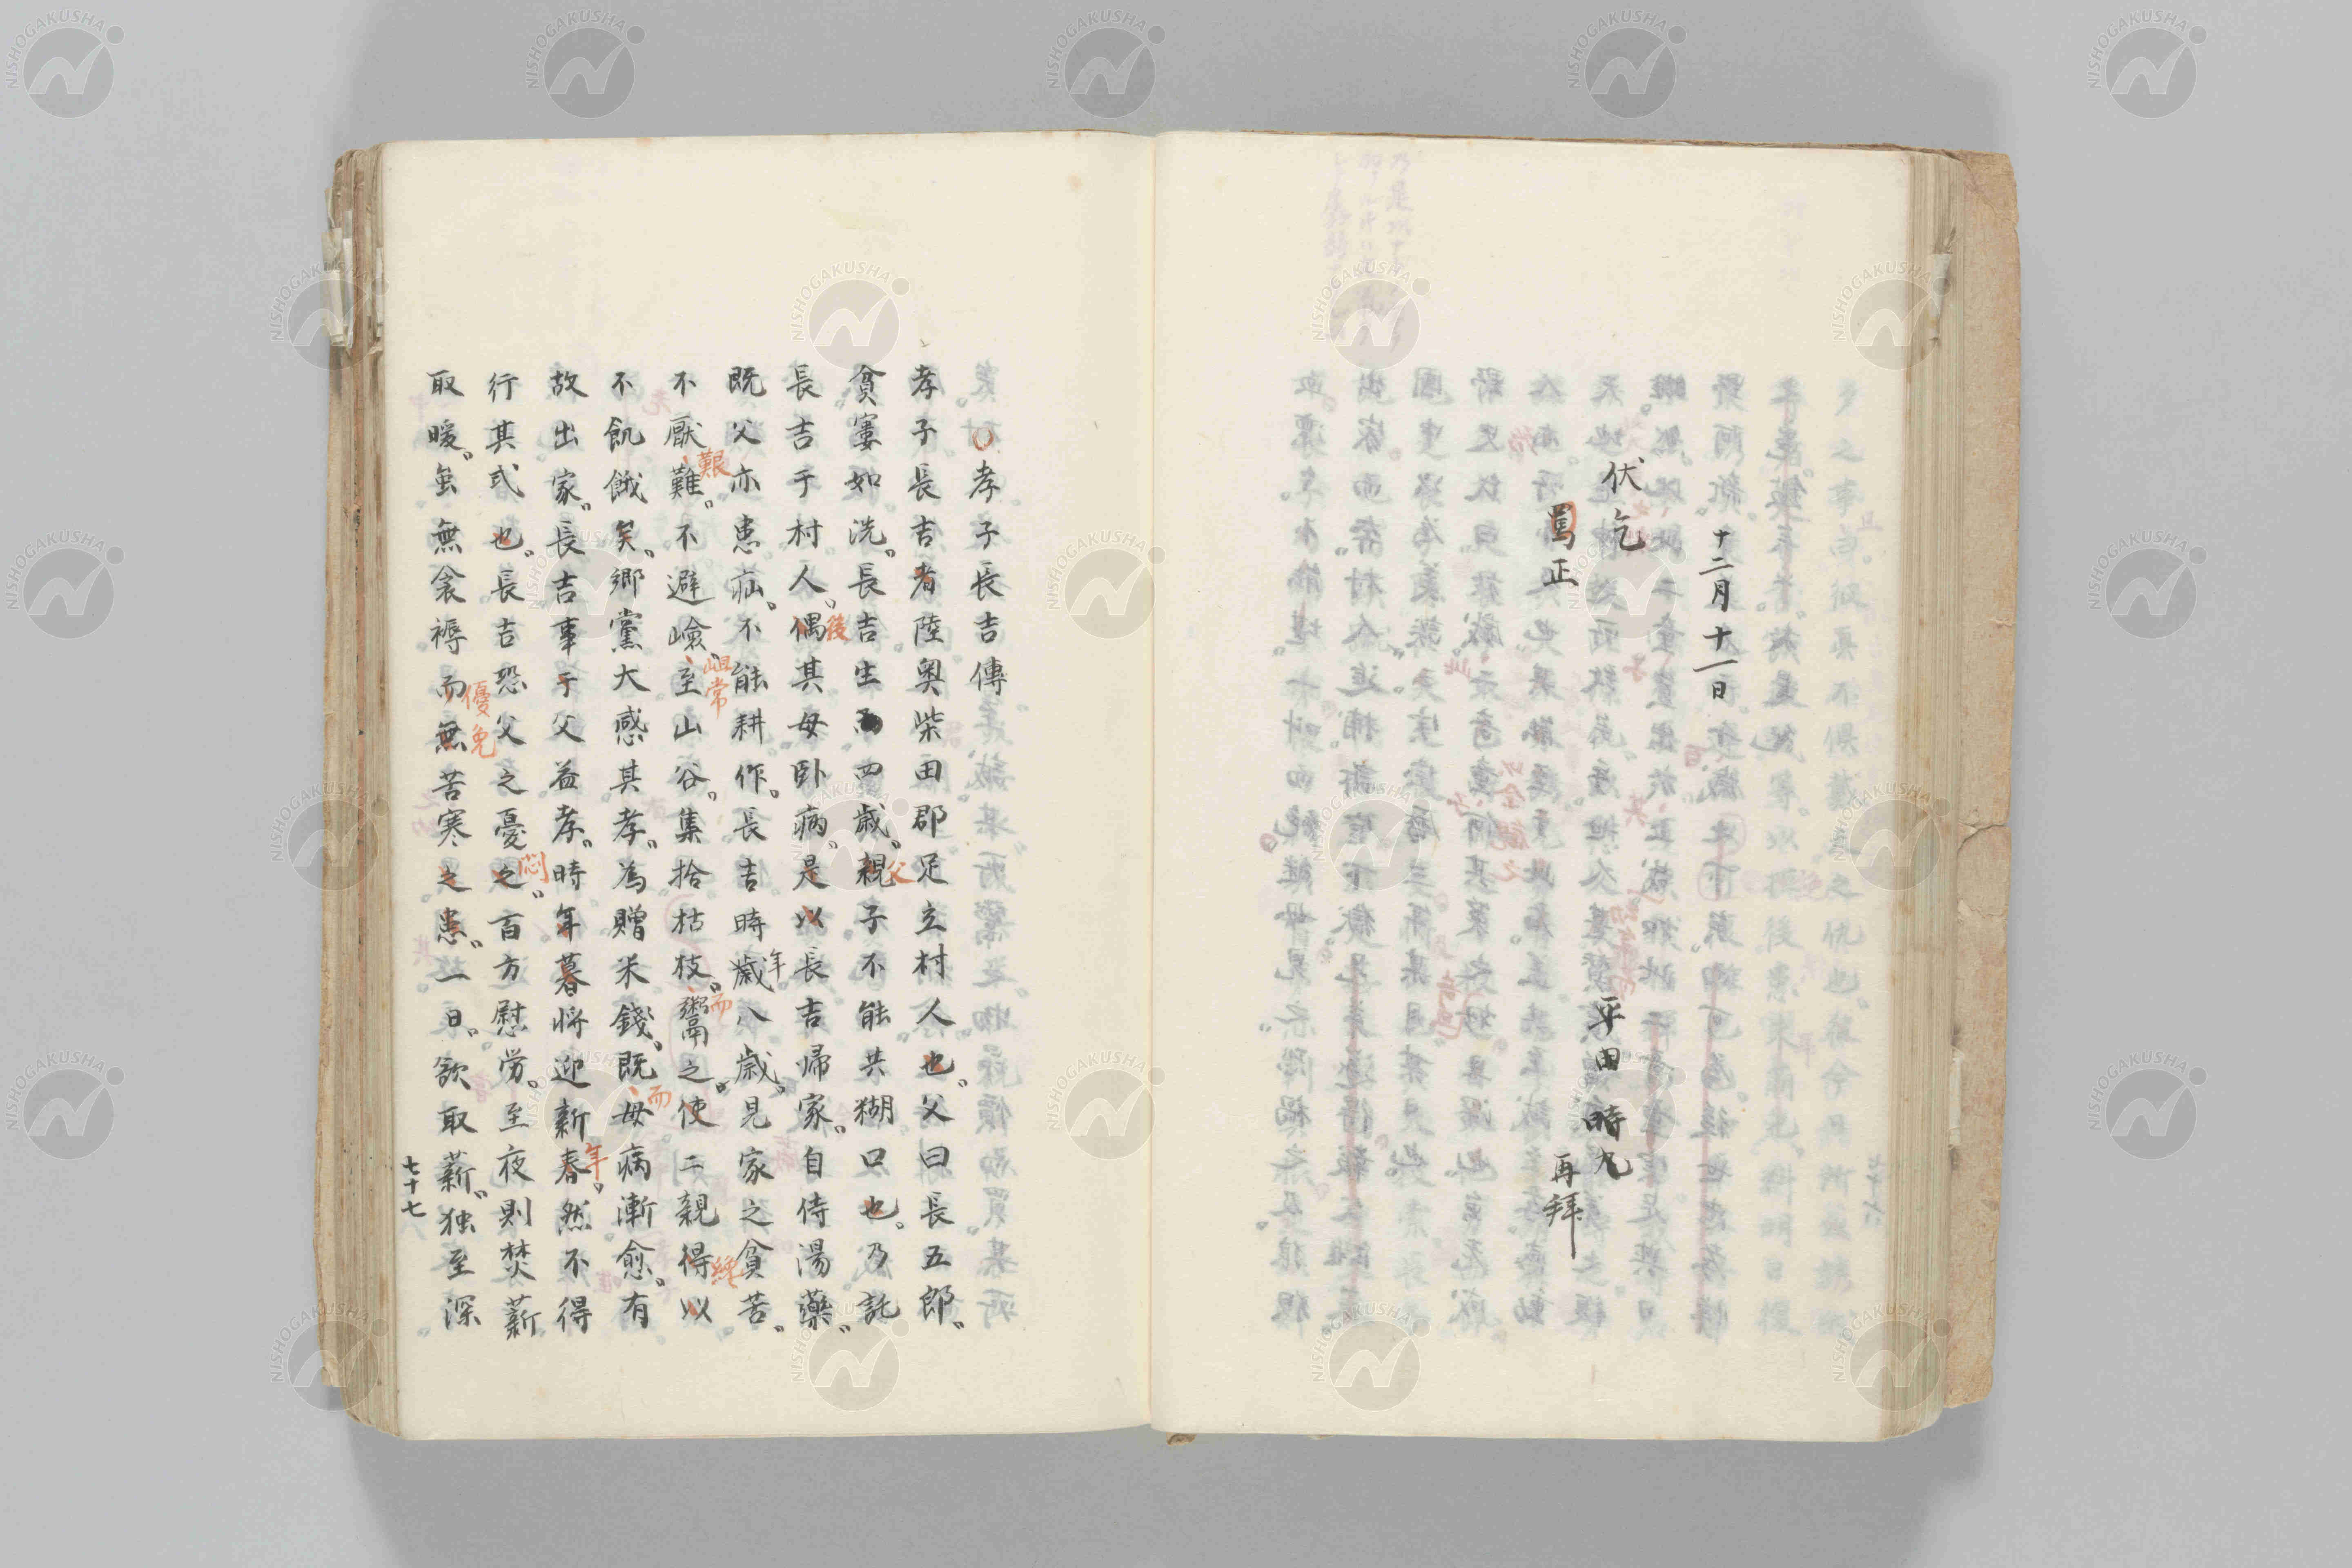 十二月十一日
伏乞
平田時九
罵正
再拜
孝子長吉傳
孝子長吉者陸奥柴田郡足立村人也。父曰長五郎。
貧窶如洗。長吉生四歳。親子不能共糊口也。乃託
父
長吉于村人。偶其母臥病。是以長吉帰家。自侍湯藥。
後
既父亦患疝。不能耕作。長吉時歳八歳。見家之貧苦。
年
不厭難。不避嶮。至山谷。集拾枯枝。鬻之。使二親得以
艱
岨常
而
不飢餓矣。郷黨大感其孝。為贈米錢。既母病漸愈。有
而
故出家。長吉事于父益孝。時年暮将迎新春。然不得
年
行其式也。長吉恐父之憂之。百方慰労。至夜則焚薪
悶
取暖。虽無衾褥而無苦寒之患。一日。欲取薪。独至深
優免
七十七